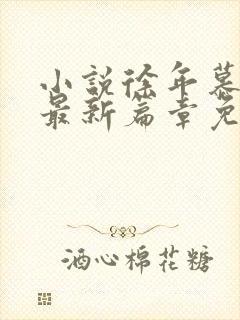 小说徐年慕
最新篇章免
酒心棉花糖